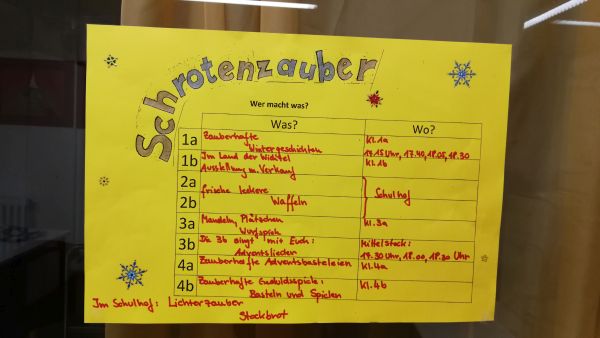 Schrotenzauber
Wer macht was?
Was? Wo?
1a Zauberhafte Kl.1a
Wintergeschichten 17.15 Uhr, 17.40, 18.05, 18.30
1b Im Land der Wichtel Kl.1b
Ausstellung m. Verkauf
2a frische leckere Schulhof
2b Waffeln
3a Mandeln, Plätzchen Kl.3a
Wurfspiele
3b Die 3b singt mit Euch: Mittelstock:
Adventslieder 17.30 Uhr, 18.00, 18.30 Uhr
4a Zauberhafte Adventsbasteleien Kl.4a
4b Zauberhafte Geduldsspiele: Kl.4b
Basteln und Spielen
Im Schulhof: Lichterzauber
Stockbrot